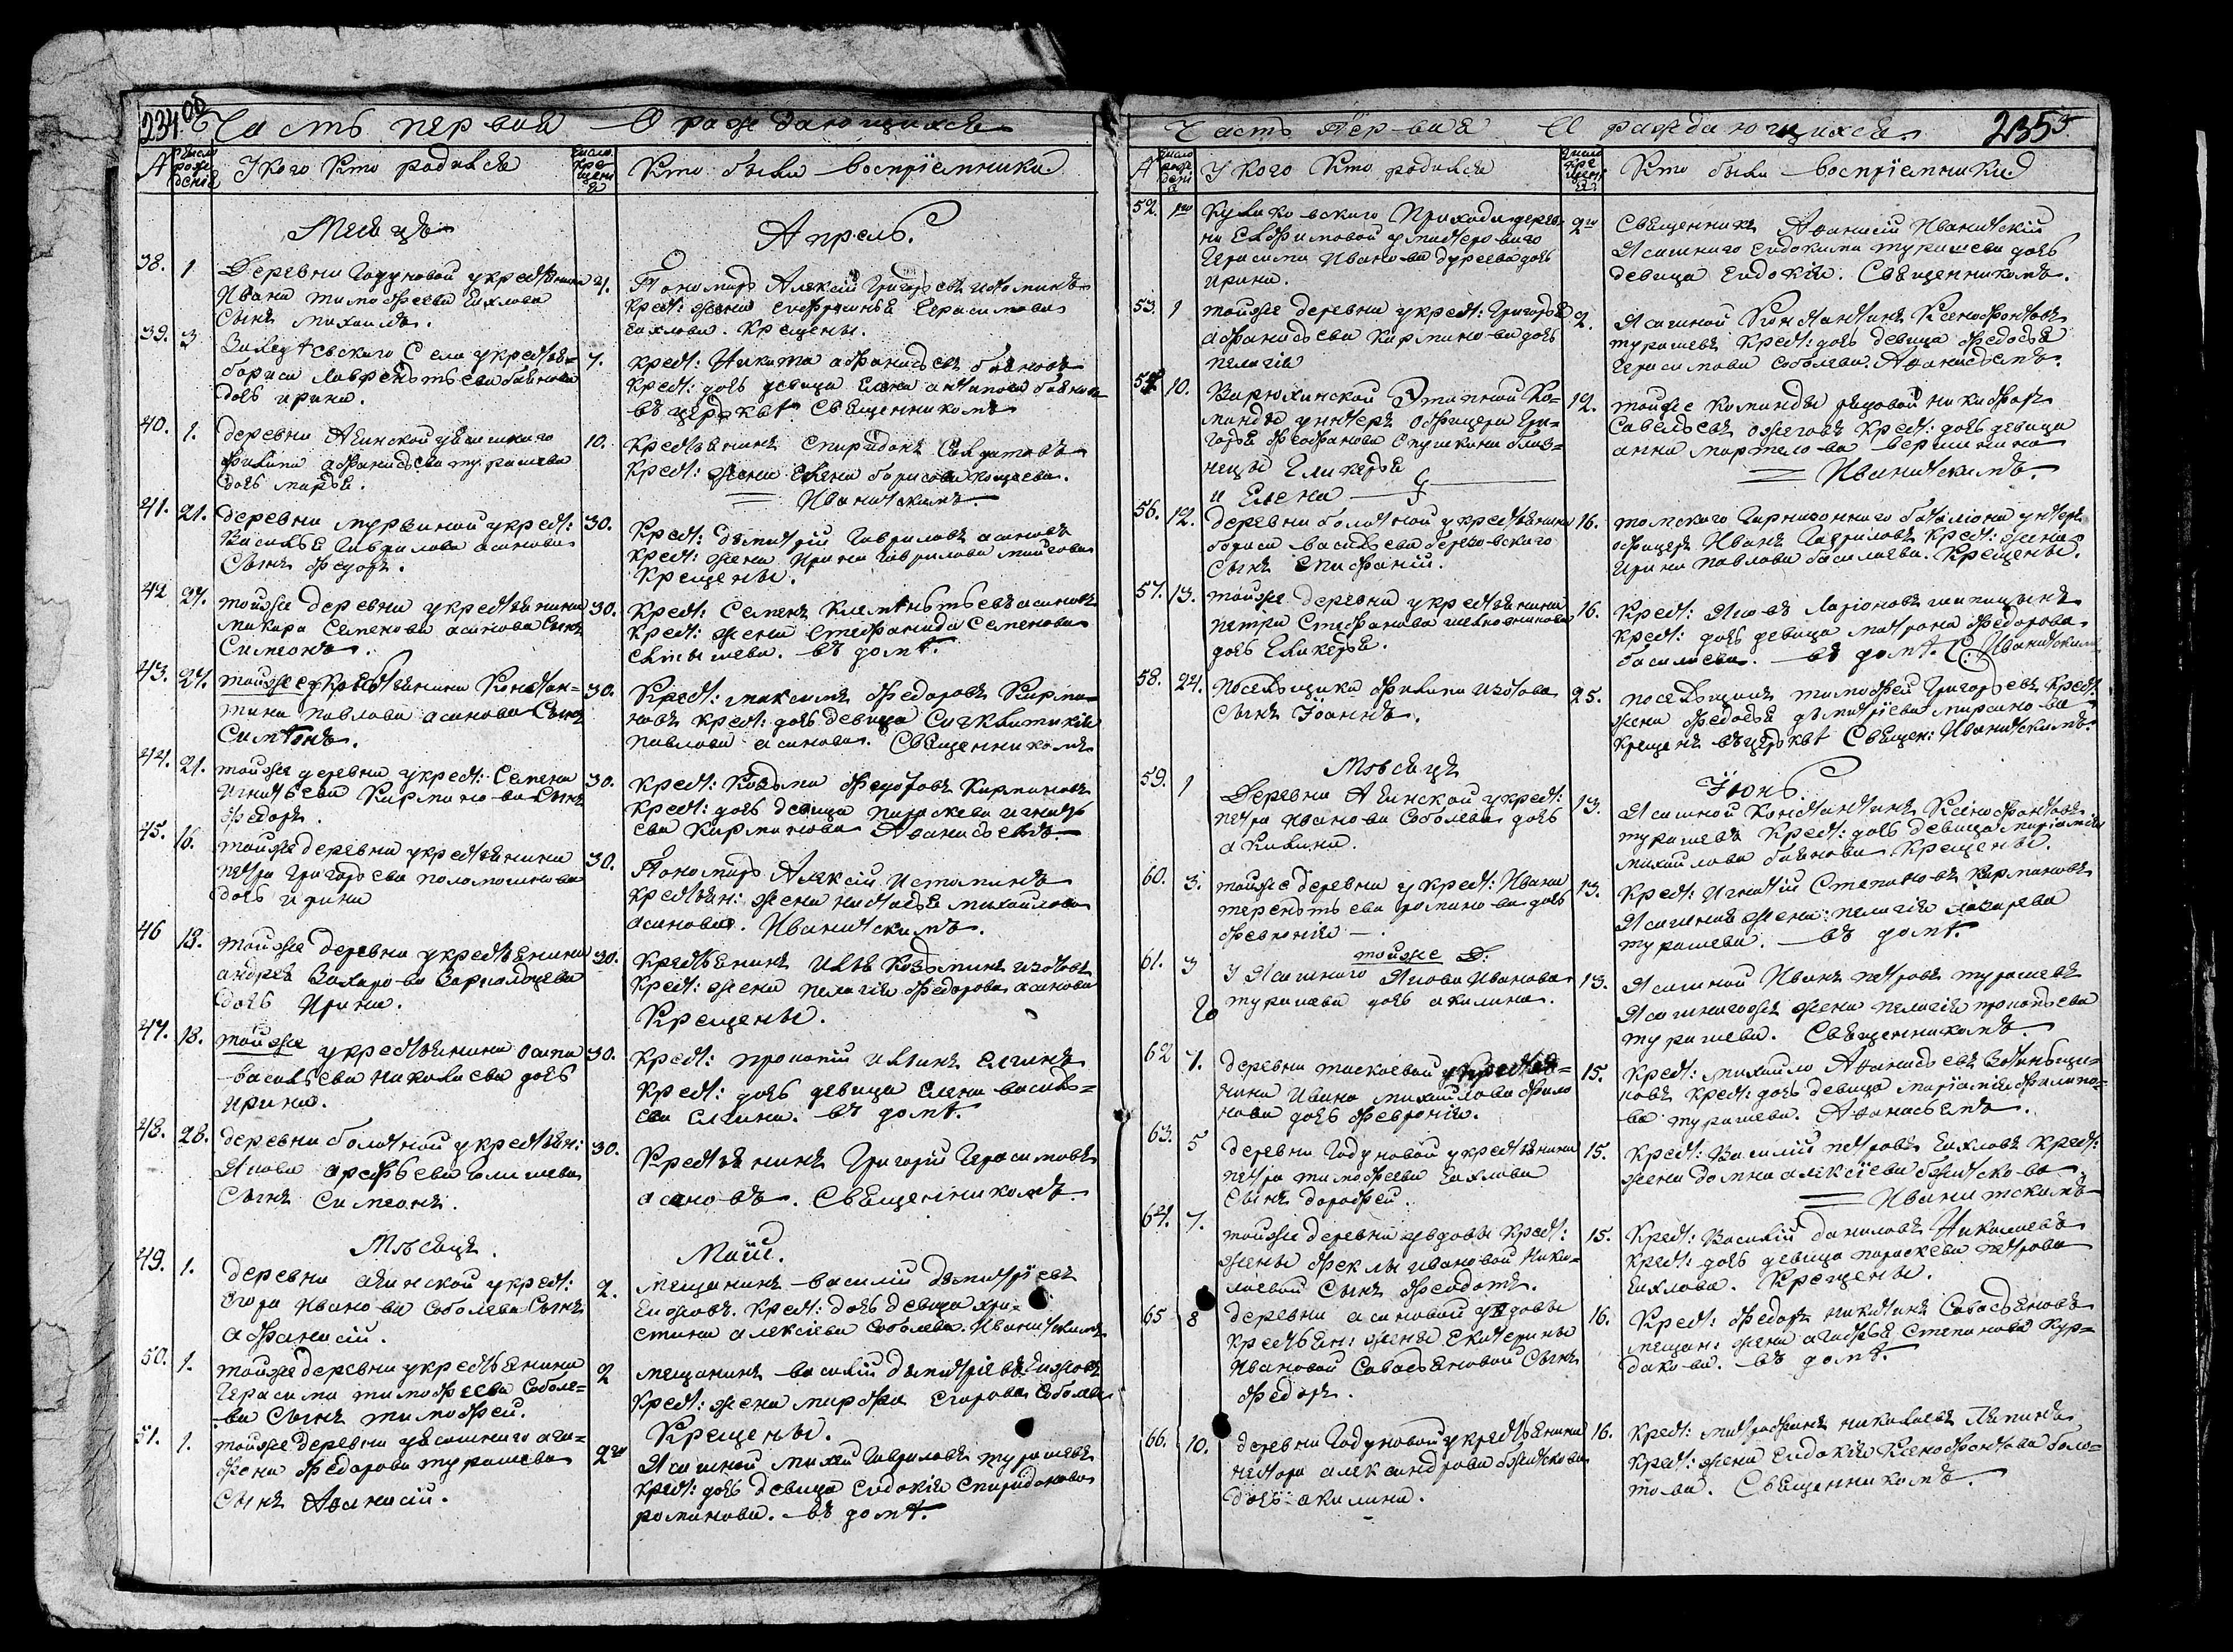 234 об
Часть первая О раждающихся
А
Число рождения
У кого кто родился
Число крещения
Кто были восприемники
Месяцъ
Апрель.
38. 1
Деревни Годуновой у крестьянина
Ивана тимофеева
Сынъ михаилъ.
Пономарь Алексій Григорьевъ
крест: жена Герасимова
Крещены.
39. 3
Села у крестьян=
бориса Лаврентьева баянова
дочь ирина.
7.
крест: Никита афанасьевъ баяновъ
крест: дочь девица антипова баянова
въ церквѣ Священникомъ
40. 1.
деревни у ясашнаго
филипа афанасьева турашева
дочь марья.
10.
крестьянинъ спиридонъ
крест: жена елена борисова
Иванитскимъ
41. 21.
деревни у крест:
Василья Гаврилова асанова
Сынъ федоръ.
30.
Крест: дъмитрій Гавриловъ асановъ
крест: жена Ирина Гаврилова
Крещены.
42. 27.
тойже деревни у крестьянина
макара Семенова асанова Сынъ
Симеонъ.
30.
Крест: Семенъ Клементьевъ асановъ
крест: жена Стефанида Семенова
въ домѣ.
43. 27.
тойже у крестьянина Констан=
тина павлова асанова Сынъ
Симеонъ.
30.
Крест: максимъ Федоровъ Кирма=
новъ крест: дочь девица Сигклитикія
павлова асанова. Священникомъ
44. 21.
тойже деревни у крест: Семена
Игнатьева Кирманова Сынъ
федоръ.
30.
крест: Козьма федоровъ Кирмановъ
крест: дочь девица параскева игнать
ева Кирманова Афанасьевъ
45. 16.
тойже деревни у крестьянина
петра Григорьева поломошнова
дочь ирина
30.
Пономарь Алексій Истоминъ
крестьян: жена настасья михайлова
асанова. Иванитскимъ.
46 18.
тойже деревни у крестьянина
андрея Захарова
дочь Ирина.
30.
Крестьянинъ Илья Козьминъ изотовъ
крест: жена пелагія федорова асанова
Крещены.
47. 18.
тойже у крестьянина осипа
васильева николаева дочь
ирина.
30.
крест: прокопій ильинъ елгинъ
крест: дочь девица Елена василь=
ева елгина. въ домѣ.
48. 28.
деревни болотной у крестьян:
Якова арефьева
Сынъ Симеонъ.
30.
Крестьянинъ Григорій Герасимовъ
асановъ. Священникомъ
Мѣсяцъ.
Маій.
49. 1.
деревни у крест:
Егора Иванова Соболева Сынъ
афанасій.
2.
мещанинъ василій дъмитріевъ
крест: дочь девица хри=
стина алексіева Соболева. Иванитскимъ
50. 1.
тойже деревни у крестьянина
Герасима тимофеева Соболе=
ва Сынъ тимофей.
2
мещанинъ василій дъмитріевъ
крест: жена марфа Егорова Соболева
Крещены.
51. 1.
тойже деревни у ясашнаго ага=
фона федорова турашева
Сынъ Афанасій.
2го
Ясашной Гавриловъ турашевъ
крест: дочь девица Евдокія спиридонова
романова. въ домѣ.
Часть Первая О раждающихся
235
А
Число рождения
У кого кто родился
Число крещения
Кто были восприемники
52. 1го
Куликовскаго Прихода дерев
ни Евфимовой у мастероваго
Герасима Иванова дуреева дочь
ирина.
2го
Священникъ Афанасій Иванитскій
Ясашнаго евдокима турашева дочь
девица Евдокія. Священникомъ.
53. 1
тойже деревни у крест: Григорья
афанасьева Кирманова дочь
пелагія
2.
Ясашной Константинъ Ксенофонтовъ
турашевъ Крест: дочь девица федосья
Герасимова Соболева. Афанасьевъ.
54 10.
Варюхинской Этапной Ко=
манды унтеръ офицера Гри=
горья феофанова близ=
нецы Гликерья
и Елена
12.
тойже команды рядовой никифоръ
Савельевъ ожеговъ крест: дочь девица
анна вершинина
Иванитскимъ.
56. 12.
деревни болотной у крестьянина
бориса васильева
Сынъ епифаній.
16.
томского Гарнизоннаго баталіона унтеръ
офицеръ Иванъ Гавриловъ крест: жена
Ирина павлова басалаева. Крещены.
57. 13.
тойже деревни у крестьянина
петра Стефанова
дочь Гликерья.
16.
Крест: Яковъ Ларіоновъ
крест: дочь девица матрона федорова
басалаева. въ домѣ. С: Иванитскимъ
58. 24.
поселщика филипа изотова
Сынъ Іоаннъ.
25.
поселщикъ тимофей Григорьевъ крест:
жена федосья дъмитріева
крещенъ въ церквѣ Священ: Иванитскимъ.
Мѣсяцъ
Іюнь
59. 1
Деревни у крест:
петра иванова Соболева дочь
акилина.
13.
Ясашной Константинъ Ксенофонтовъ
турашевъ крест: дочь девица маріамія
михайлова баянова. Крещены.
60. 3.
тойже деревни у крест: Ивана
терентьева романова дочь
феврония.
13.
крест: Игнатій Степановъ Кирмановъ
Ясашная жена: пелагія лазарева
турашева. въ домѣ.
61. 3
тойже Д:
у Ясашнаго Якова Иванова
турашева дочь акилина.
13.
Ясашной Иванъ петровъ турашевъ
Ясашнагожъ жена пелагія прокопьева
турашева. Священникомъ.
62 7.
деревни у крестья=
нина Ивана михайлова
дочь Февронія.
15.
Крест: михайло Афанасьевъ
крест: дочь девица маріамія филипо=
ва турашева. Афанасьевъ.
63. 5
деревни Годуновой у крестьянина
петра тимофеева
Сынъ дорофей.
15.
крест: Василій петровъ крест:
жена домна алексіева
Иванитскимъ
64. 7.
тойже деревни у вдовы крест:
жены феклы ивановой Нико=
лаевой Сынъ Феодотъ.
15.
крест: Василій даниловъ Николаевъ
крест: дочь девица параскева петрова
Крещены.
65 8
деревни асановой у вдовы
крестьян: жены Екатерины
Ивановой Савасьяновой Сынъ
федоръ.
16.
крест: Федоръ никитинъ Савасьяновъ
мещан: жена агафья Степанова Кур=
дакова. въ домѣ.
66. 10.
деревни Годуновой у крестьянина
нестора александрова
дочь акилина.
16.
крест: митрофанъ николаевъ
крест: жена Евдокія Ксенофонтова боло=
това. Священникомъ.